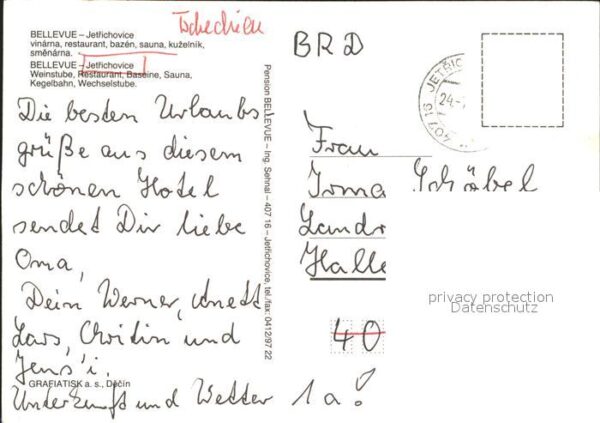 Tschechien
BELLEVUE – Jetřichovice
vinárna, restaurant, bazén, sauna, kuželník,
směnárna.
BELLEVUE – Jetřichovice
Weinstube, Restaurant, Baseine, Sauna,
Kegelbahn, Wechselstube.
Die besten Urlaubs
grüße aus diesem
schönen Hotel
sendet Dir liebe
Oma,
Dein Werner,
Lars, Christin und
Jens'i.
GRAFIATISK a. s., Děčín
Unterkunft und Wetter 1a!
Pension BELLEVUE – Ing. Sehnal – 407 16 – Jetřichovice, tel./fax: 0412/97 22
BRD
407 16 JETŘIC
24.
Frau
Irma Schöbel
Landr
Halle
40
privacy protection
Datenschutz